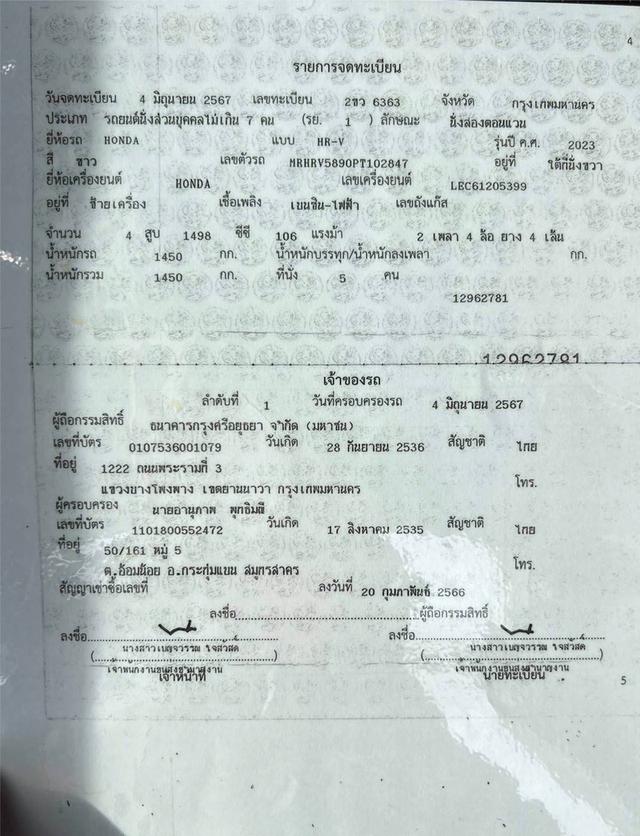 4
รายการจดทะเบียน
วันจดทะเบียน 4 มิถุนายน 2567 เลขทะเบียน 2ขว 6363 จังหวัด กรุงเทพมหานคร
ประเภท รถยนต์นั่งส่วนบุคคลไม่เกิน 7 คน (รย. 1 ) ลักษณะ นั่งสองตอนแวน
ยี่ห้อรถ HONDA แบบ HR-V รุ่นปี ค.ศ. 2023
สี ขาว เลขตัวรถ MRHRV5890PT102847 อยู่ที่ ใต้ที่นั่งขวา
ยี่ห้อเครื่องยนต์ HONDA เลขเครื่องยนต์ LEC61205399
อยู่ที่ ซ้ายเครื่อง เชื้อเพลิง เบนซิน-ไฟฟ้า เลขถังแก๊ส
จำนวน 4 สูบ 1498 ซีซี 106 แรงม้า 2 เพลา 4 ล้อ ยาง 4 เส้น
น้ำหนักรถ 1450 กก. น้ำหนักบรรทุก/น้ำหนักลงเพลา กก.
น้ำหนักรวม 1450 กก. ที่นั่ง 5 คน
12962781
12962781
เจ้าของรถ
ลำดับที่ 1 วันที่ครอบครองรถ 4 มิถุนายน 2567
ผู้ถือกรรมสิทธิ์ ธนาคารกรุงศรีอยุธยา จำกัด (มหาชน)
เลขที่บัตร 0107536001079 วันเกิด 28 กันยายน 2536 สัญชาติ ไทย
ที่อยู่ 1222 ถนนพระรามที่ 3
แขวงบางโพงพาง เขตยานนาวา กรุงเทพมหานคร โทร.
ผู้ครอบครอง นายอานุภาพ พุทธิมณี
เลขที่บัตร 1101800552472 วันเกิด 17 สิงหาคม 2535 สัญชาติ ไทย
ที่อยู่ 50/161 หมู่ 5
ต.อ้อมน้อย อ.กระทุ่มแบน สมุทรสาคร โทร.
สัญญาเช่าซื้อเลขที่ ลงวันที่ 20 กุมภาพันธ์ 2566
ลงชื่อ ผู้ถือกรรมสิทธิ์
ลงชื่อ ลงชื่อ
นางสาวเบญจวรรณ ใจสวัสดิ์ นางสาวเบญจวรรณ ใจสวัสดิ์
เจ้าพนักงานขนส่งชำนาญงาน เจ้าพนักงานขนส่งชำนาญงาน
เจ้าหน้าที่ นายทะเบียน
5